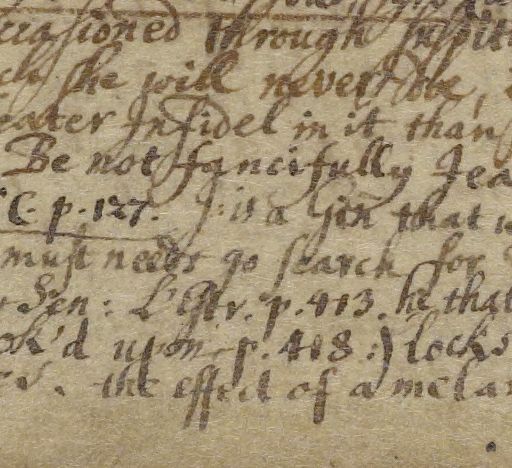 occasioned through suspiti
she will never be,
eater Infidel in it than
Be not fancifully Jea
C. p. 127. J: is a Gin that w
must needs go search for
Sen: L'Estr. p. 413. he that
ok'd upon p. 418:) locks
the effect of a melan